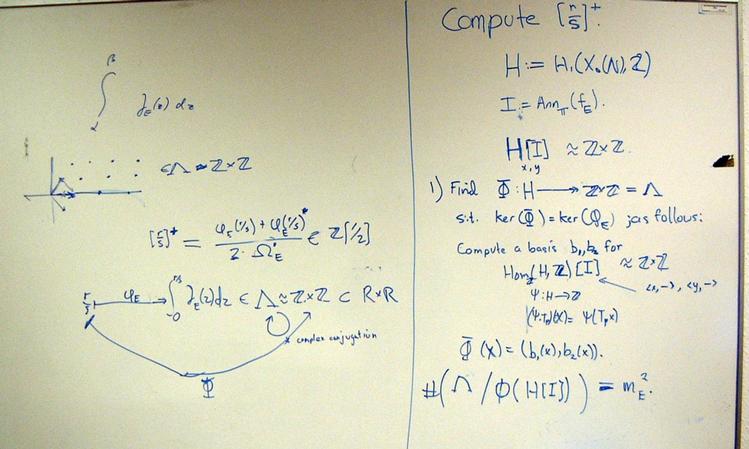 ∫_α^β f_E(z) dz
∈ Λ ≈ ℤ×ℤ
[r/s]^+ = (φ_E(r/s) + φ_E(r/s)^*) / (2·Ω_E) ∈ ℤ[1/2]
r/s ⟼ φ_E → ∫_{-∞}^{r/s} f_E(z)dz ∈ Λ ≈ ℤ×ℤ ⊂ R×R
complex conjugation
Φ
Compute [r/s]^+:
H := H_1(X_0(N), ℤ)
I := Ann_𝕋(f_E).
H[I] ≈ ℤ×ℤ.
x, y
1) Find Φ : H ⟶ ℤ×ℤ = Λ
s.t. ker(Φ) = ker(φ_E) as follows:
Compute a basis b_1, b_2 for
Hom(H, ℤ)[I] ≈ ℤ×ℤ
<x, ->, <y, ->
Ψ : H → ℤ
(Ψ·T_p)(x) = Ψ(T_p x)
Φ(x) = (b_1(x), b_2(x)).
#(Λ / Φ(H[I])) = m_E^2.